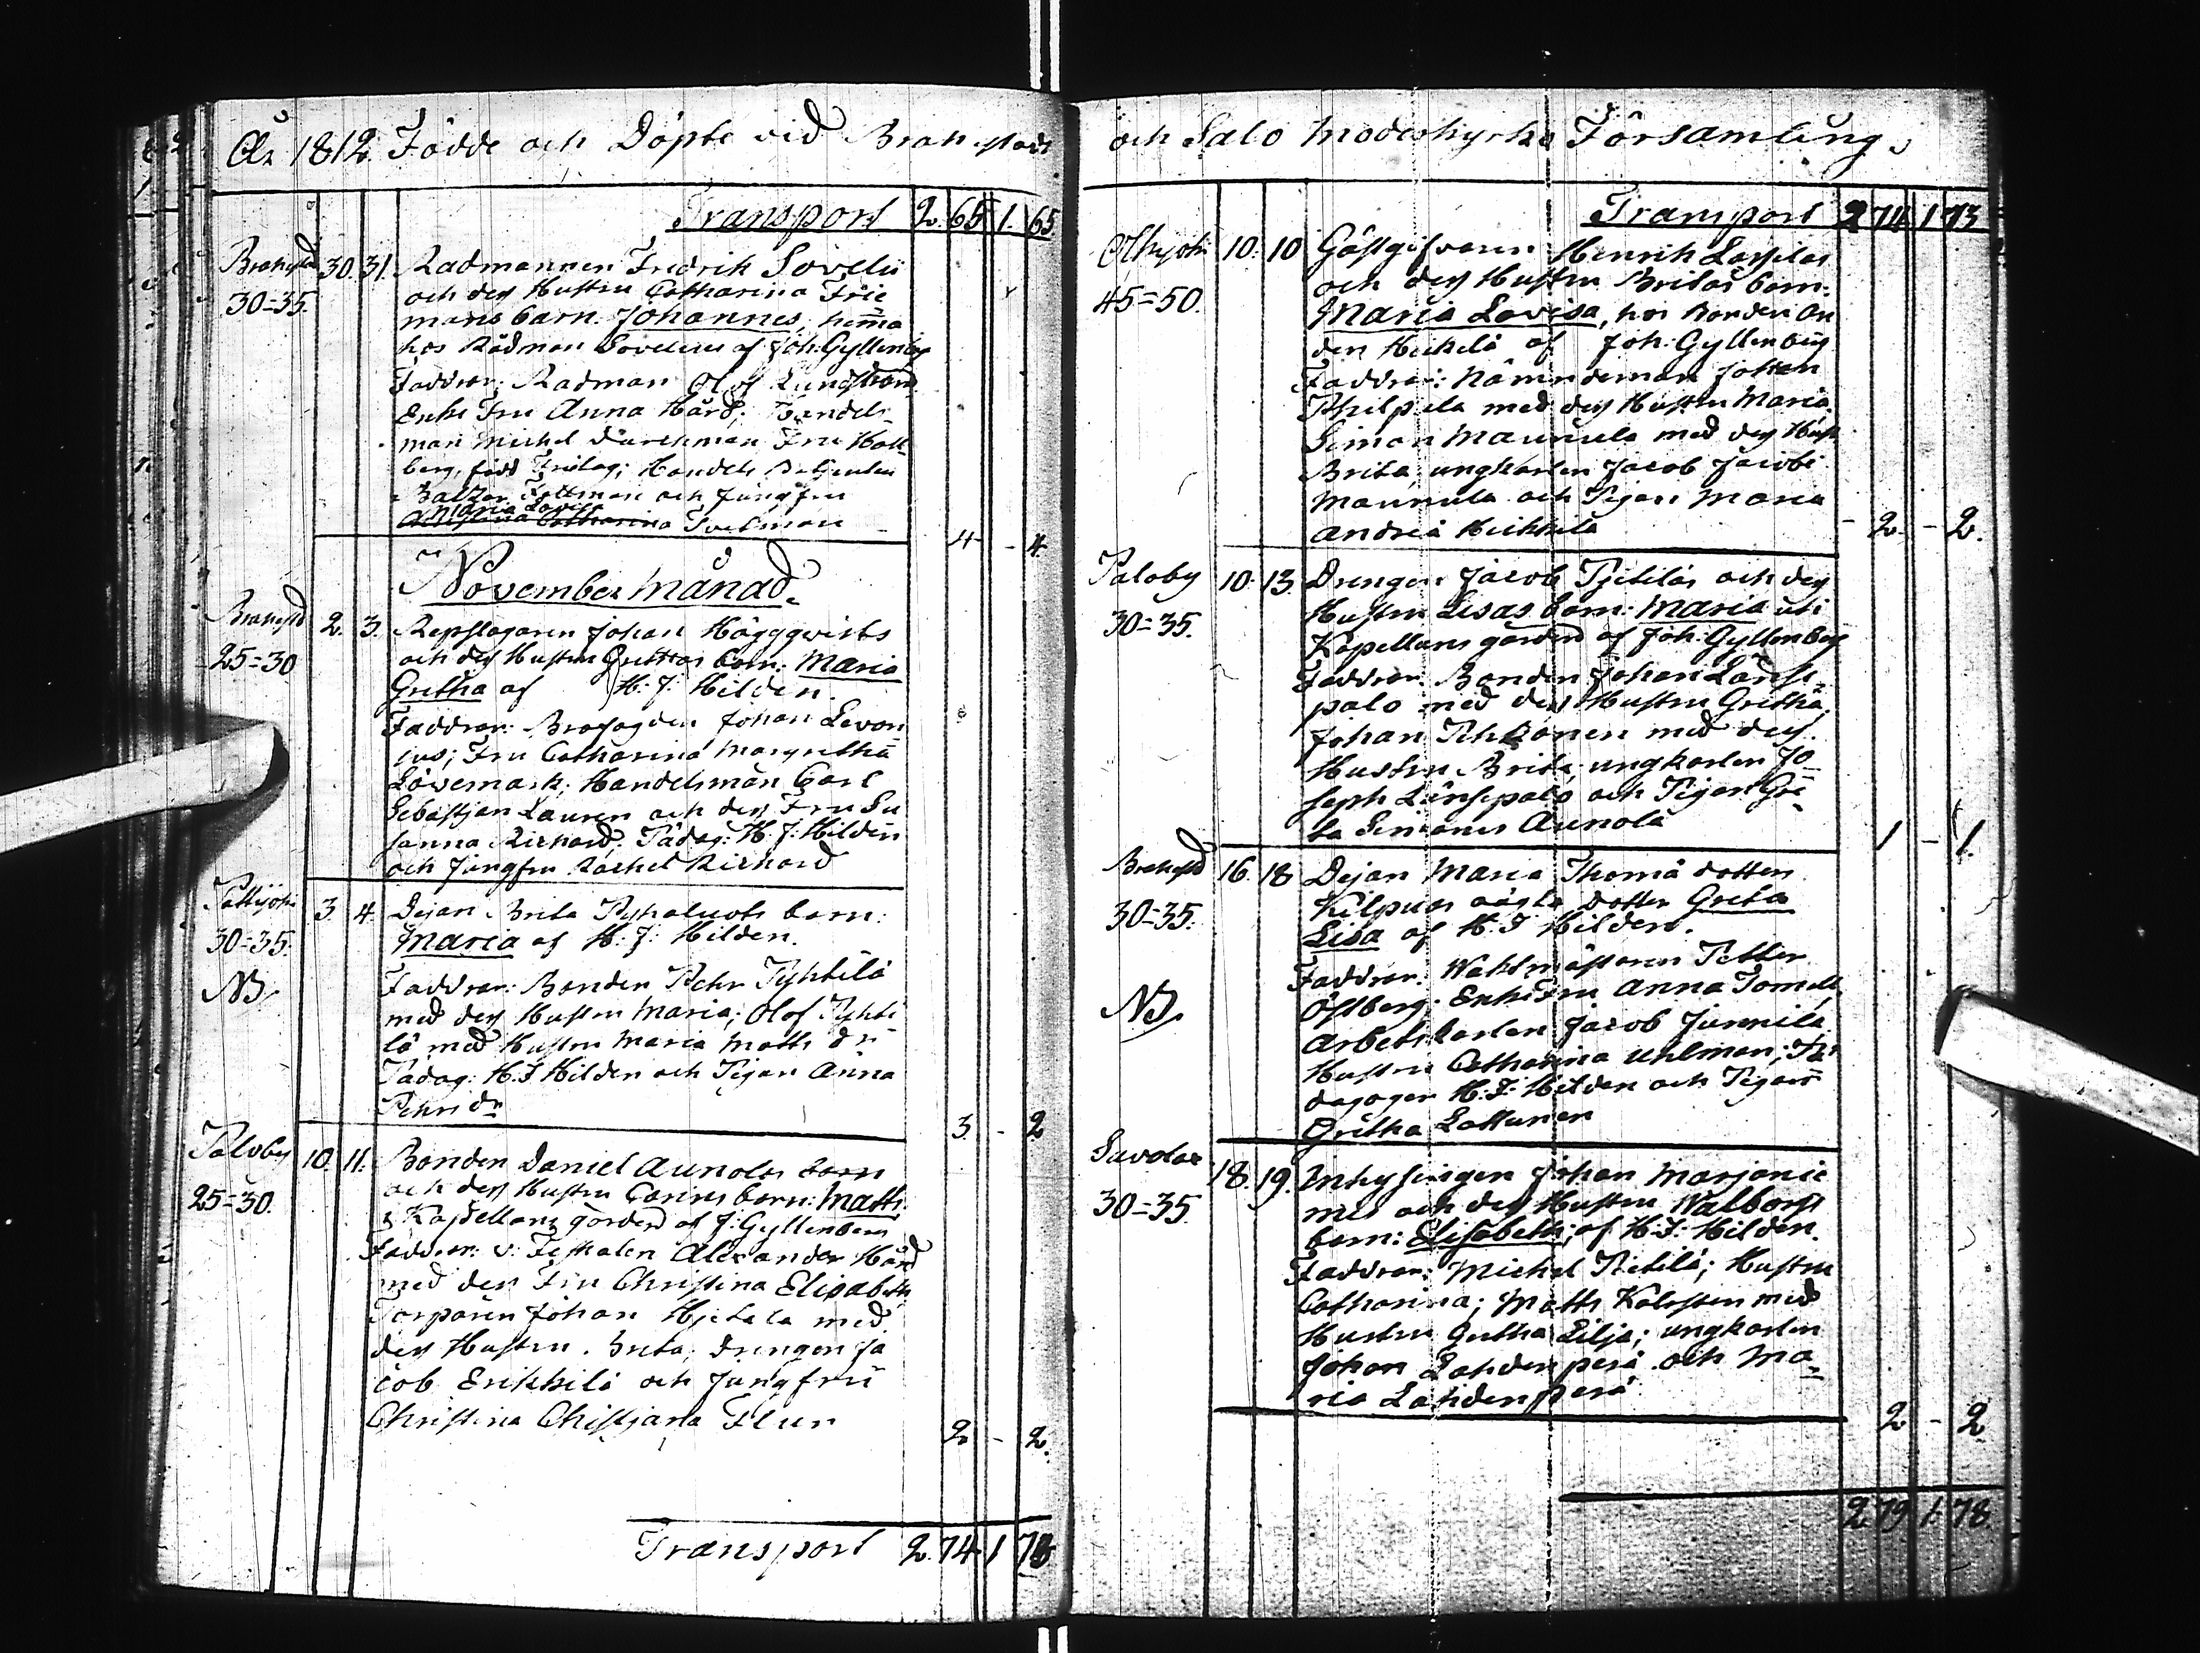 År 1812. Födde och Döpte vid Brahestads
Transport 2. 65 1. 65
Brahestad 30. 31. Radmannen Fredrik Sovelii
30=35. och dess Hustru Catharina Frie
mans barn. Johannes, hemma
hos Rådman Sovelius af Joh: Gyllenberg
Faddrar: Radman Olof Lundström
Enke Fru Anna Hård; Handels
man Michel Durchman Fru Holl
berg, född Freitag; Handels Betjenten
Baltzar Feltman och Jungfru
Maria Lovisa
Christina Catharina Tvelman 4 - 4
November Månad.
Brahestad 2. 3. Repslagaren Johan Häggqvists
25=30 och dess Hustru Grethas barn: Maria
Gretha af H: J: Hilden.
Faddrar: Brofogden Johan Levon
jus; Fru Catharina Margretha
Lövemark; Handelsman Carl
Sebastjan Lauren och dess Fru Su
sanna Richard; Pädag: H: J: Hilden
och Jungfru Rachel Richard
Pattijoki 3. 4. Pigan Brita Pyhäluoto barn:
30=35. Maria af H: J: Hilden.
NB. Faddrar: Bonden Pehr Tyhtilä
med dess Hustru Maria; Olof Tyhti
lä med Hustru Maria Matts dr
Pädag: H. J Hilden och Pigan Anna
Pehrs dr 3. - 2
Paloby 10. 11. Bonden Daniel Aunolas barn
25=30. och dess Hustru Carins barn: Matts.
i Kapellans gården af J: Gyllenberg
Faddrar: v: Fiskalen Alexander Hård
med dess Fru Christina Elisabeth
Torparen Johan Hjetala med
dess Hustru Brita; Drengen Ja
cob Erikkilä och Jungfru
Christina Christjana Flur 2 - 2.
Transport 2. 74 1 73
och Salo Moderkyrko Församling.
Transport 2 74 1 73
Olkijoki 10. 10 Gästgifvaren Henrik Lassilas
45=50. och dess Hustru Britas barn.
Maria Lovisa, hos Bonden An
ders Heikilä af Joh: Gyllenberg
Faddrar: Nämndeman Johan
Philpula med dess Hustru Maria.
Simon Maunula med dess Hust
Brita, ungkarlen Jacob Jacobi
Maunula och Pigan Maria
Andreä Heikkilä - 2 - 2.
Paloby 10. 13. Drengen Jacob Pjetiläs och dess
30=35. Hustru Lisas barn: Maria uti
Kapellans gården af Joh: Gyllenberg
Faddrar. Bonden Johan Länsi
palo med dess Hustru Gretha,
Johan Pihkonen med dess
Hustru Brita; ungkarlen Jo
seph Länsipalo och Pigan Gre
ta Simons Aunola 1 - 1.
Brahestad 16. 18 Pigan Maria Thomä dotter
30=35. Kilpuas oägta dotter Greta
Lisa af H. J Hilden.
NB. Faddrar: Waktmästaren Petter
Östberg; Enke Fru Anna Tomell
Arbetskarlen Jacob Junnila
Hustru Catharina Uhlman; Pä
dagogen H: J: Hilden och Pigan
Gretha Lattunen
Savolax 18. 19. Inhysingen Johan Marjanie
30=35. mis och dess Hustru Walborgs
barn: Elisabetha, af H: J: Hilden.
Faddrar: Michel Pietilä; Hustru
Catharina; Matts Kalosten med
Hustru Gretha Lilja; ungkarlen
Johan Lahdenperä och Ma
ria Lahdenperä 2 - 2
2 79 1. 78.